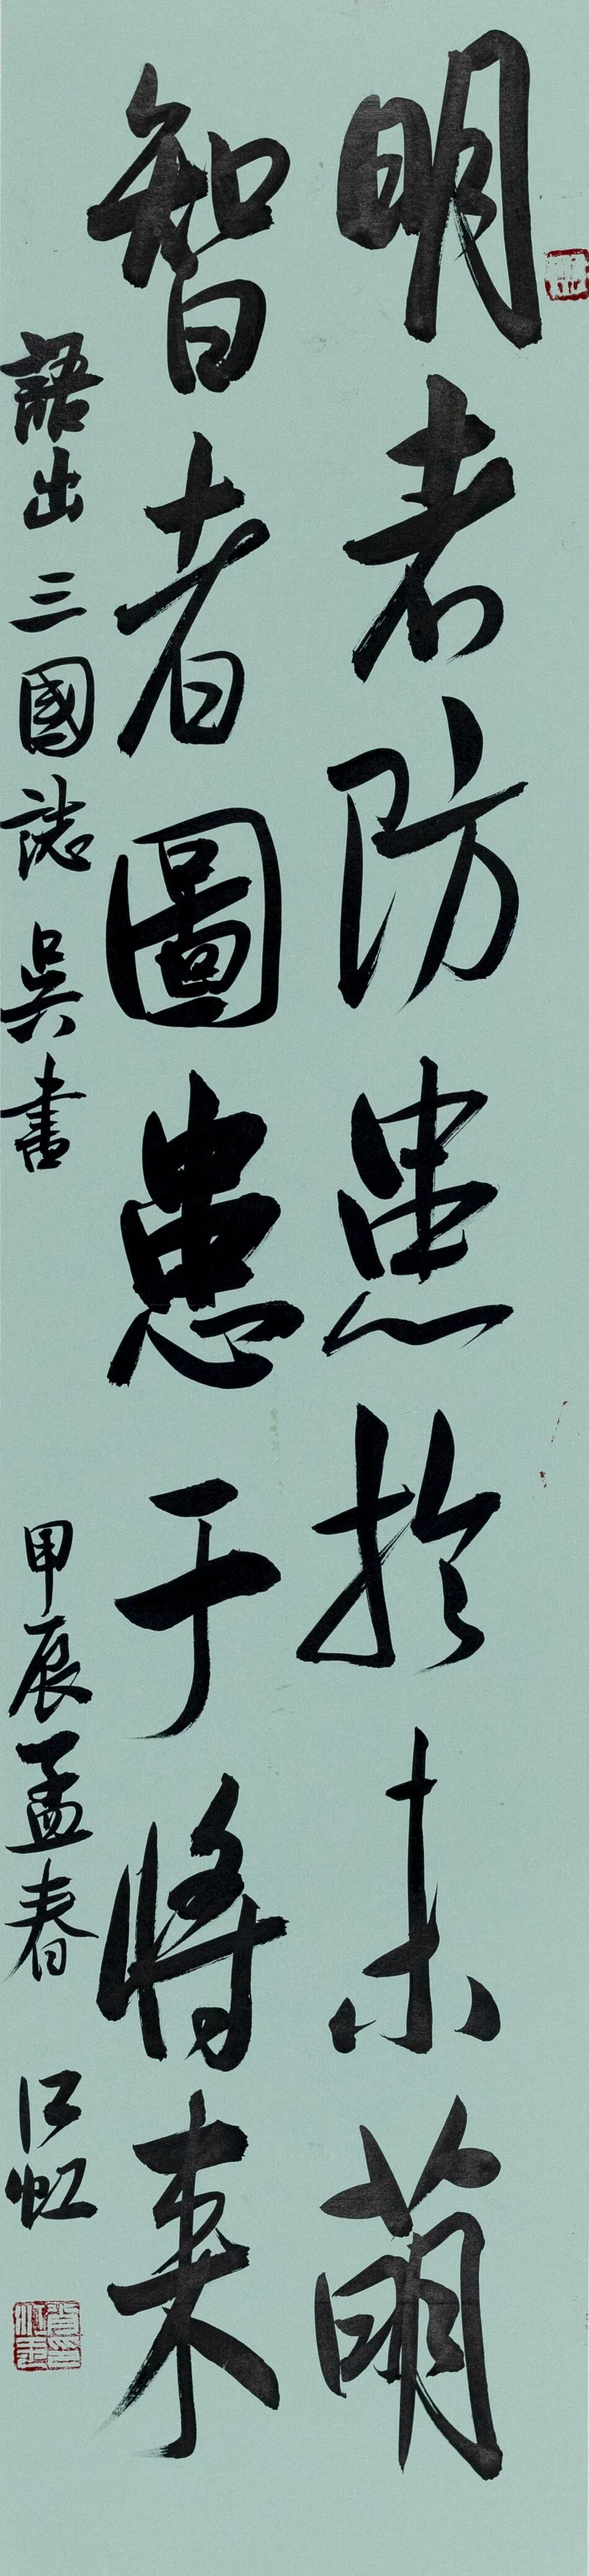 明者防患於未萌
智者圖患于將来
語出三國誌吳書 甲辰孟春 江虹